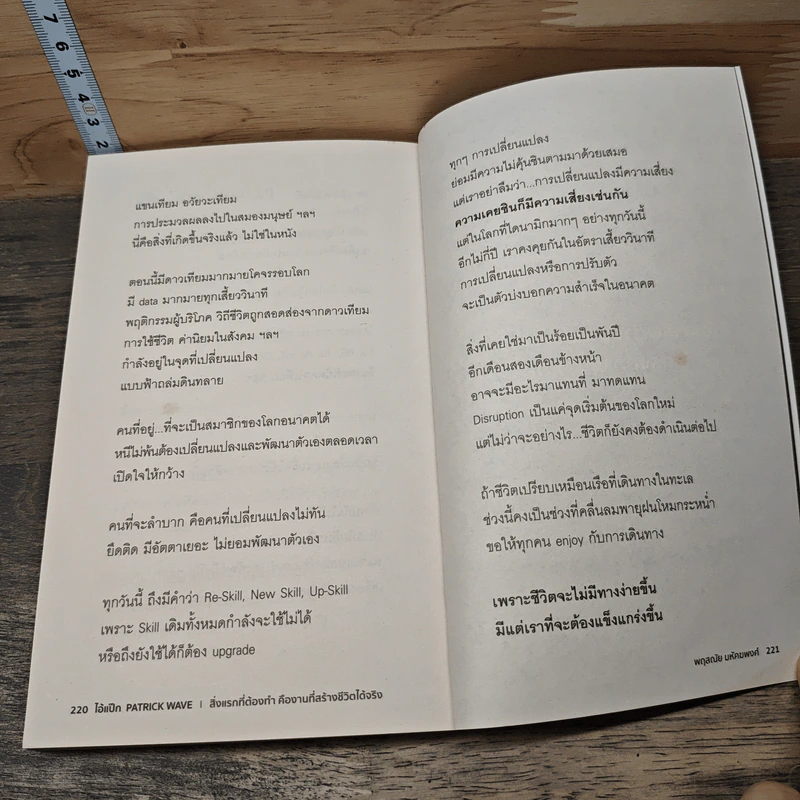 7 6 5 4 3 2
แขนเทียม อวัยวะเทียม
การประมวลผลลงไปในสมองมนุษย์ ฯลฯ
นี่คือสิ่งที่เกิดขึ้นจริงแล้ว ไม่ใช่ในหนัง
ตอนนี้มีดาวเทียมมากมายโคจรรอบโลก
มี data มากมายทุกเสี้ยววินาที
พฤติกรรมผู้บริโภค วิถีชีวิตถูกสอดส่องจากดาวเทียม
การใช้ชีวิต ค่านิยมในสังคม ฯลฯ
กำลังอยู่ในจุดที่เปลี่ยนแปลง
แบบฟ้าถล่มดินทลาย
คนที่อยู่...ที่จะเป็นสมาชิกของโลกอนาคตได้
หนีไม่พ้นต้องเปลี่ยนแปลงและพัฒนาตัวเองตลอดเวลา
เปิดใจให้กว้าง
คนที่จะลำบาก คือคนที่เปลี่ยนแปลงไม่ทัน
ยึดติด มีอัตตาเยอะ ไม่ยอมพัฒนาตัวเอง
ทุกวันนี้ ถึงมีคำว่า Re-Skill, New Skill, Up-Skill
เพราะ Skill เดิมทั้งหมดกำลังจะใช้ไม่ได้
หรือถึงยังใช้ได้ก็ต้อง upgrade
220 ไอ้แป๊ก PATRICK WAVE | สิ่งแรกที่ต้องทำ คืองานที่สร้างชีวิตได้จริง
ทุกๆ การเปลี่ยนแปลง
ย่อมมีความไม่คุ้นชินตามมาด้วยเสมอ
แต่เราอย่าลืมว่า...การเปลี่ยนแปลงมีความเสี่ยง
ความเคยชินก็มีความเสี่ยงเช่นกัน
แต่ในโลกที่ไดนามิกมากๆ อย่างทุกวันนี้
อีกไม่กี่ปี เราคงคุยกันในอัตราเสี้ยววินาที
การเปลี่ยนแปลงหรือการปรับตัว
จะเป็นตัวบ่งบอกความสำเร็จในอนาคต
สิ่งที่เคยใช่มาเป็นร้อยเป็นพันปี
อีกเดือนสองเดือนข้างหน้า
อาจจะมีอะไรมาแทนที่ มาทดแทน
Disruption เป็นแค่จุดเริ่มต้นของโลกใหม่
แต่ไม่ว่าจะอย่างไร...ชีวิตก็ยังคงต้องดำเนินต่อไป
ถ้าชีวิตเปรียบเหมือนเรือที่เดินทางในทะเล
ช่วงนี้คงเป็นช่วงที่คลื่นลมพายุฝนโหมกระหน่ำ
ขอให้ทุกคน enjoy กับการเดินทาง
เพราะชีวิตจะไม่มีทางง่ายขึ้น
มีแต่เราที่จะต้องแข็งแกร่งขึ้น
พฤสณัย มหัคฆพงศ์ 221